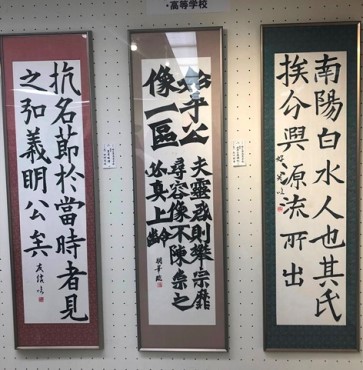 ・高等学校
南陽白水人也其氏
族分興源流所出
始平公
像一區
夫靈 則攀宗靡
尋容像不陳崇之
必真上
抗名節於當時者見
之弘義明公矣